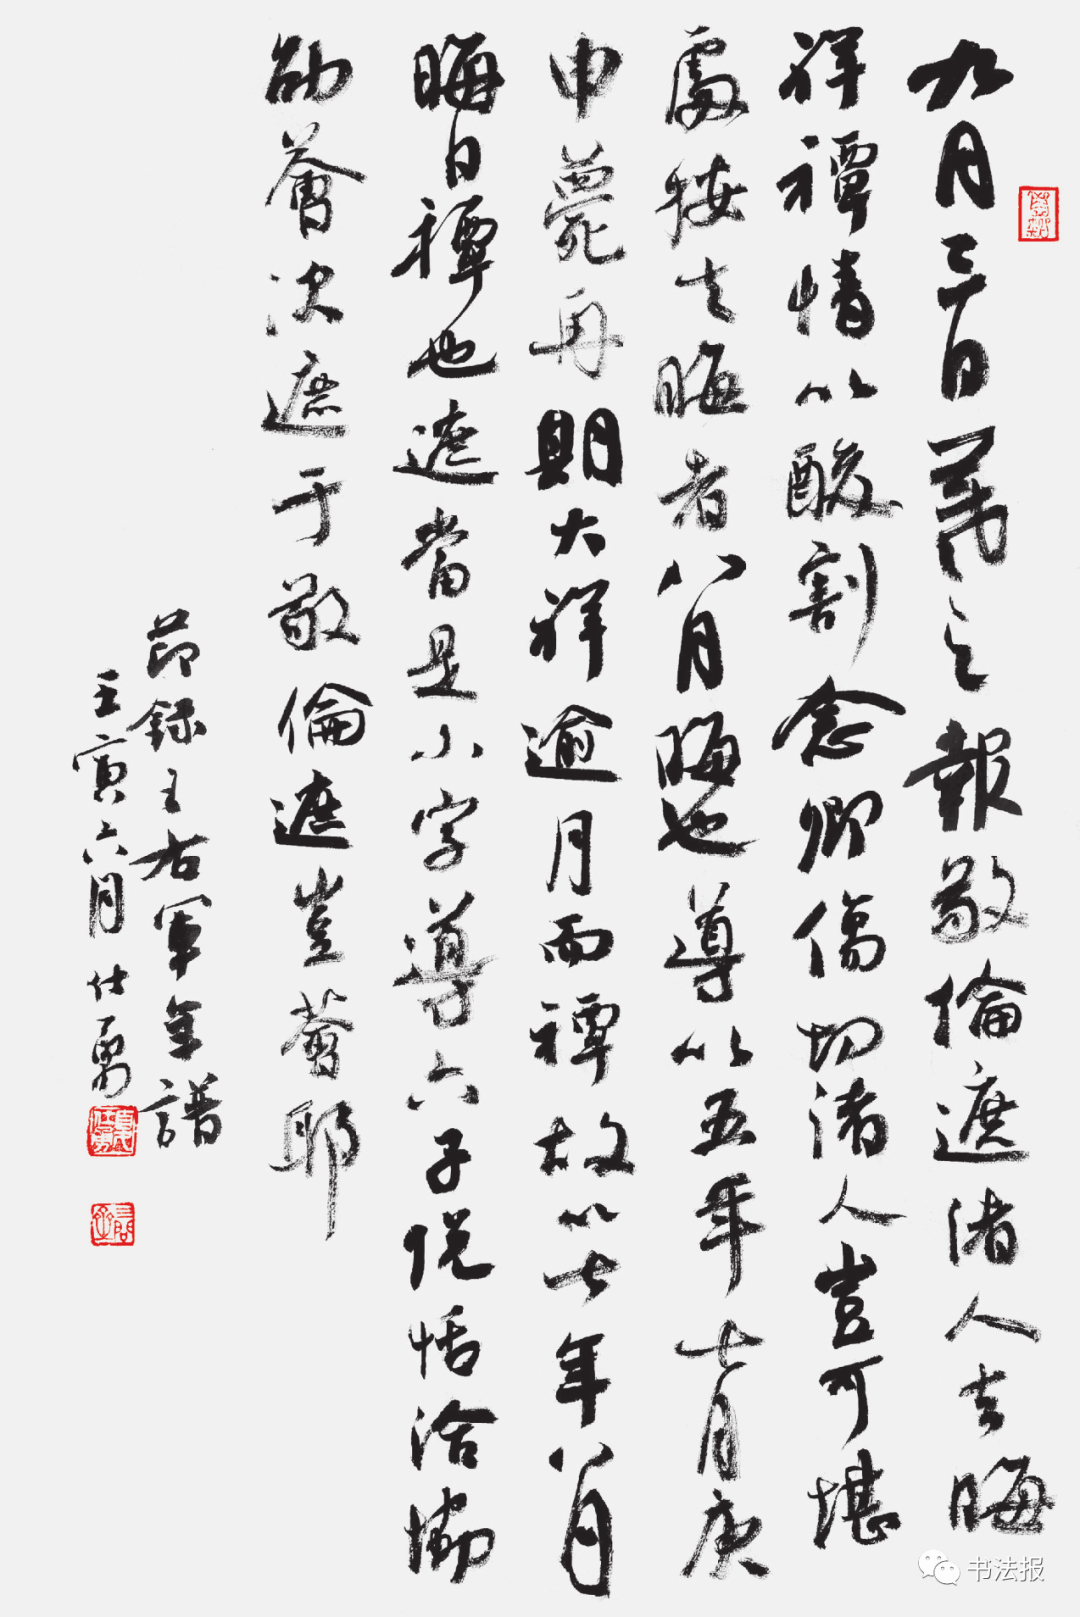 九月三日羲之報敬倫遮諸人去晦
祥禫情以酸割念卿傷切諸人豈可堪
處按去晦者八月晦也導以五年七月庚
申薨再期大祥逾月而禫故以七年八月
晦日禫也遮當是小字導六子悅恬洽協
劭薈次遮于敬倫遮豈薈耶
節錄王右軍年譜
壬寅六月仕勇
书法报